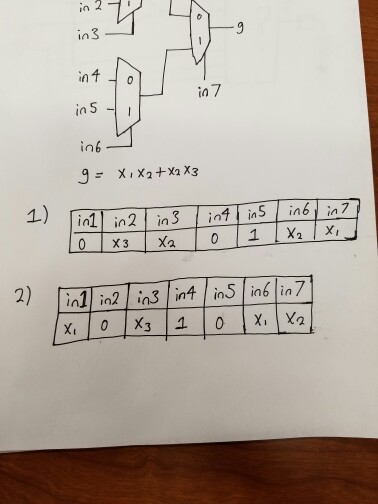 in 2
1
in3
0
1
g
in4
0
in5
1
in7
in6
g = x1x2+x2x3
1)
in1 in2 in3 in4 in5 in6 in7
0 x3 x2 0 1 x2 x1
2)
in1 in2 in3 in4 in5 in6 in7
x1 0 x3 1 0 x1 x2